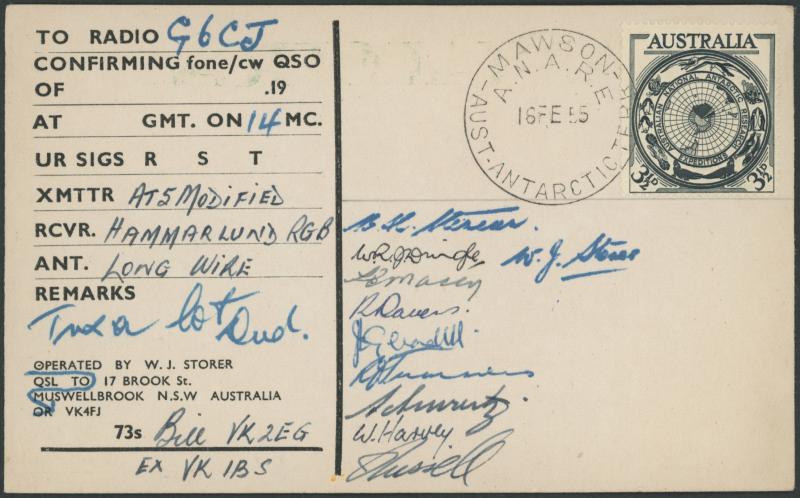 TO RADIO G6CJ
CONFIRMING fone/cw QSO
OF .19
AT GMT. ON 14 MC.
UR SIGS R S T
XMTTR AT5 MODIFIED
RCVR. HAMMARLUND RGB
ANT. LONG WIRE
REMARKS
Tnx a lot
OPERATED BY W. J. STORER
QSL TO 17 BROOK St.
MUSWELLBROOK N.S.W AUSTRALIA
OR VK4FJ
73s Bill VK2EG
EX VK1BS
MAWSON
A.N.A.R.E
16FE 55
AUST-ANTARCTIC TERR
AUSTRALIA
AUSTRALIAN NATIONAL ANTARCTIC RESEARCH EXPEDITIONS
3½D 3½D
W. J. Storer
R Dovers.
Schwartz.
W. Harvey
J Russell